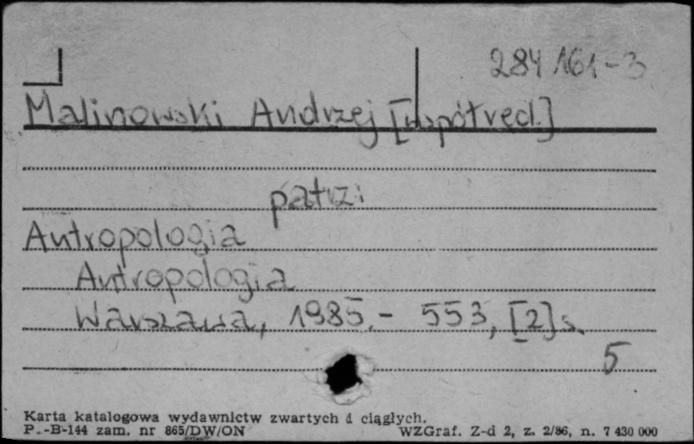 284 161-3
Malinowski Andrzej [współred.]
patrz:
Antropologia
Antropologia
Warszawa, 1985.- 553, [2] s.
5
Karta katalogowa wydawnictw zwartych i ciągłych.
P.-B-144 zam. nr 865/DW/ON WZGraf. Z-d 2, z. 2/86, n. 7 430 000